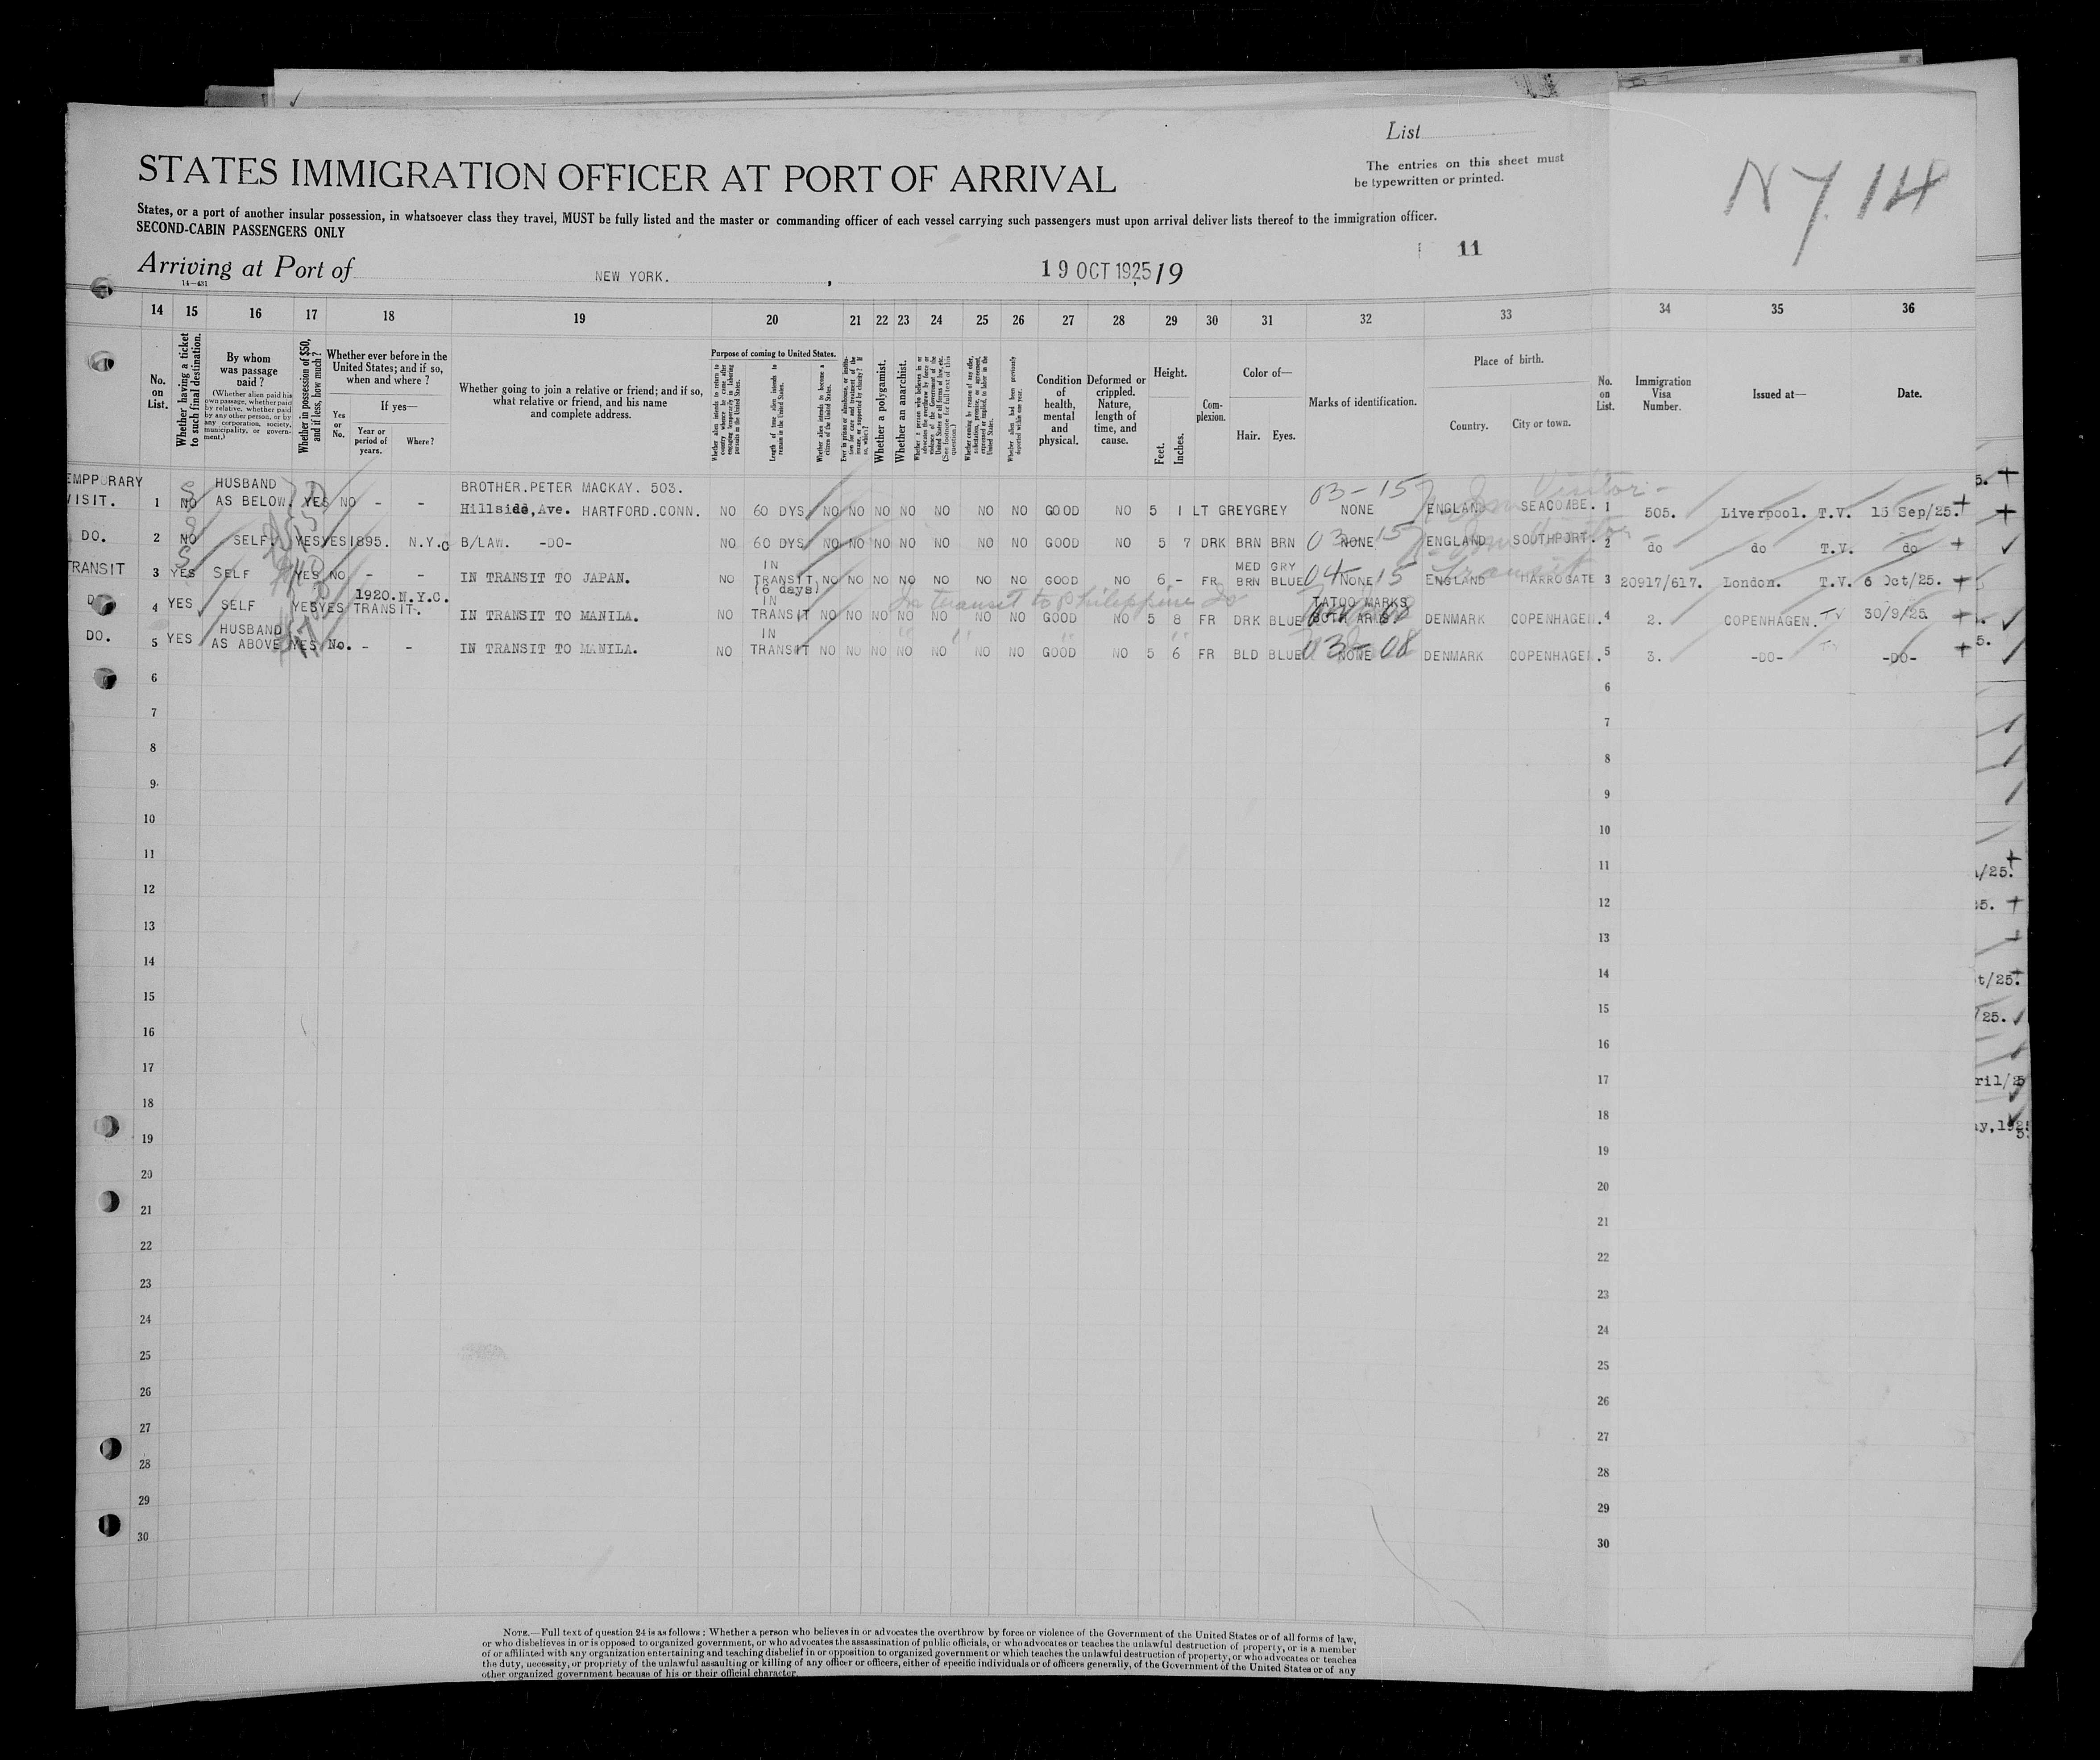 List
The entries on this sheet must
be typewritten or printed.
NY. 14
STATES IMMIGRATION OFFICER AT PORT OF ARRIVAL
States, or a port of another insular possession, in whatsoever class they travel, MUST be fully listed and the master or commanding officer of each vessel carrying such passengers must upon arrival deliver lists thereof to the immigration officer.
SECOND-CABIN PASSENGERS ONLY
11
Arriving at Port of NEW YORK. , 19 OCT 1925 19
14—431
14 15 16 17 18 19 20 21 22 23 24 25 26 27 28 29 30 31 32 33 34 35 36
No. on List.
Whether having a ticket to such final destination.
By whom was passage paid?
(Whether alien paid his own passage, whether paid by relative, whether paid by any other person, or by any corporation, society, municipality, or government.)
Whether in possession of $50, and if less, how much?
Whether ever before in the United States; and if so, when and where?
Yes or No.
If yes—
Year or period of years.
Where?
Whether going to join a relative or friend; and if so, what relative or friend, and his name and complete address.
Purpose of coming to United States.
Whether alien intends to return to country whence he came after engaging temporarily in laboring pursuits in the United States.
Length of time alien intends to remain in the United States.
Whether alien intends to become a citizen of the United States.
Whether a polygamist.
Whether an anarchist.
Condition of health, mental and physical.
Deformed or crippled. Nature, length of time, and cause.
Height.
Feet.
Inches.
Complexion.
Color of—
Hair. Eyes.
Marks of identification.
Place of birth.
Country. City or town.
No. on List.
Immigration Visa Number.
Issued at—
Date.
EMPPURARY HUSBAND BROTHER.PETER MACKAY. 503. 03-15 Visitor-
VISIT. 1 NO AS BELOW. YES NO - - Hillside,Ave. HARTFORD.CONN. NO 60 DYS NO NO NO NO NO NO NO GOOD NO 5 1 LT GREY GREY NONE ENGLAND SEACOMBE. 1 505. Liverpool. T.V. 15 Sep/25.
DO. 2 NO SELF. YES YES 1895. N.Y.C B/LAW. -DO- NO 60 DYS NO NO NO NO NO NO NO GOOD NO 5 7 DRK BRN BRN NONE ENGLAND SOUTHPORT. 2 do do T.V. do
IN MED GRY transit
TRANSIT 3 YES SELF YES NO - - IN TRANSIT TO JAPAN. NO TRANSIT NO NO NO NO NO NO NO GOOD NO 6 - FR BRN BLUE 04 NONE 15 ENGLAND HARROGATE 3 20917/617. London. T.V. 6 Oct/25.
(6 days)
1920.N.Y.C. IN In transit to Philippine Is TATOO MARKS
4 YES SELF YES YES TRANSIT. IN TRANSIT TO MANILA. NO TRANSIT NO NO NO NO NO NO NO GOOD NO 5 8 FR DRK BLUE DENMARK COPENHAGEN. 4 2. COPENHAGEN. TV 30/9/25
HUSBAND IN
DO. 5 YES AS ABOVE YES No. - - IN TRANSIT TO MANILA. NO TRANSIT NO NO NO NO NO NO NO GOOD NO 5 6 FR BLD BLUE 03-08 NONE DENMARK COPENHAGEN. 5 3. -DO- -DO-
6 6
7 7
8 8
9 9
10 10
11 11
12 12
13 13
14 14
15 15
16 16
17 17
18 18
19 19
20 20
21 21
22 22
23 23
24 24
25 25
26 26
27 27
28 28
29 29
30 30
NOTE.—Full text of question 24 is as follows: Whether a person who believes in or advocates the overthrow by force or violence of the Government of the United States or of all forms of law,
or who disbelieves in or is opposed to organized government, or who advocates the assassination of public officials, or who advocates or teaches the unlawful destruction of property, or is a member
of or affiliated with any organization entertaining and teaching disbelief in or opposition to organized government or which teaches the unlawful destruction of property, or who advocates or teaches
the duty, necessity, or propriety of the unlawful assaulting or killing of any officer or officers, either of specific individuals or of officers generally, of the Government of the United States or of any
other organized government because of his or their official character.